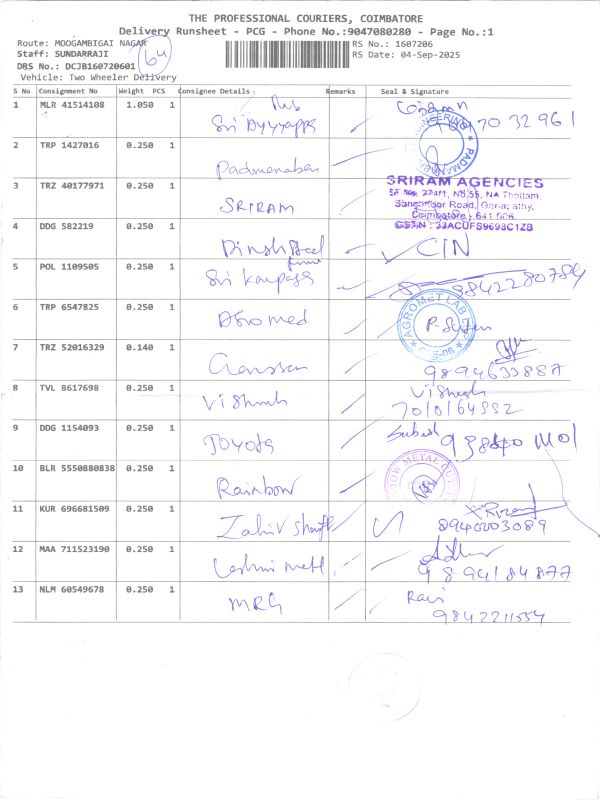 THE PROFESSIONAL COURIERS, COIMBATORE
Delivery Runsheet - PCG - Phone No.:9047080280 - Page No.:1
Route: MOOGAMBIGAI NAGAR
RS No.: 1607206
Staff: SUNDARRAJI
64
RS Date: 04-Sep-2025
DRS No.: DCJB160720601
Vehicle: Two Wheeler Delivery
S No Consignment No Weight PCS Consignee Details Remarks Seal & Signature
1 MLR 41514108 1.050 1 Sri Ayyappa
70 32 961
2 TRP 1427016 0.250 1 Padmanaban
ENGINEERING PADMANABAN
3 TRZ 40177971 0.250 1 SRIRAM
SRIRAM AGENCIES
SF No. 274/1, No.55, NA Thottam,
Sanganoor Road, Ganapathy,
Coimbatore - 641 006
GSTIN : 33ACUFS9693C1ZB
4 DDG 582219 0.250 1 Dinsh
CIN
5 POL 1109505 0.250 1 Sri
9842280784
6 TRP 6547825 0.250 1
AGROMET LAB
CBE-06
7 TRZ 52016329 0.140 1
9894633887
8 TVL 8617698 0.250 1 Vishnu
7010164992
9 DDG 1154093 0.250 1 TOYOTA
Subash
10 BLR 5550880838 0.250 1 Rainbow
METAL
11 KUR 696681509 0.250 1 Zahir
8940203089
12 MAA 711523190 0.250 1 Lashmi
9894184877
13 NLM 60549678 0.250 1 MRG
Ravi
9842211554